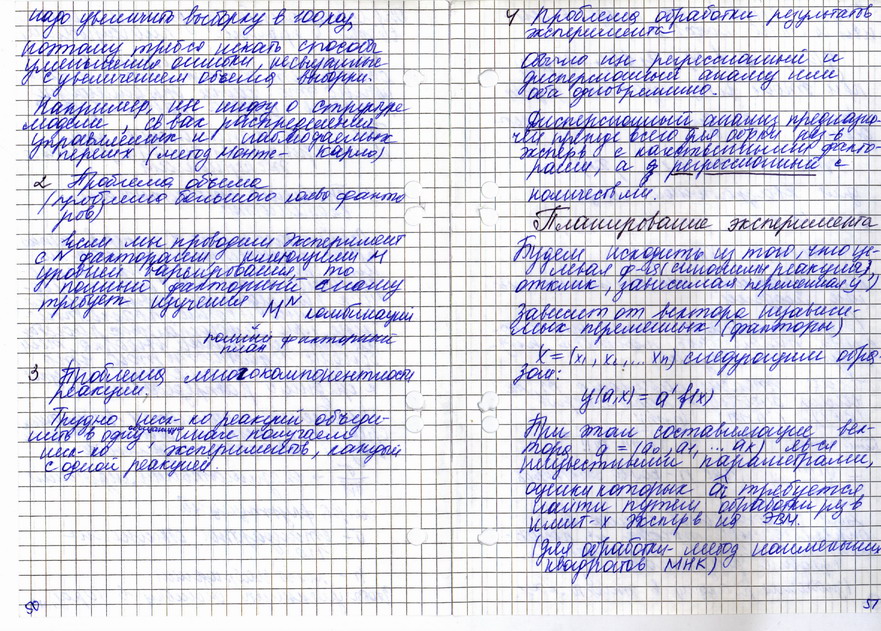 надо увеличить выборку в 100 раз,
поэтому треб-ся искать способы
уменьшения ошибки, не связанные
с увеличением объема выборки.
Например, исп инфу о структуре
модели, св-вах распределений
управляемых и наблюдаемых
перемых (метод Монте-Карло)
2 Проблема объема
(проблема большого кол-ва факто
ров)
Если мы проводим эксперимент
с N факторами, имеющими M
уровней варьирования, то
полный факторный
требует изучения M^N комбинаций
полный факторный
план
3 Проблема многокомпонентности
реакции,
Трудно неск-ко реакций объеди-
нить в одну, иначе получаем
неск-ко экспериментов, каждый
с одной реакцией.
50
4 Проблема обработки результатов
эксперимента
Обычно исп регрессионный и
дисперсионный анализ или
оба одновременно.
Дисперсионный анализ предназна-
чен прежде всего для обрки рез-в
экспер. с качественными факто-
рами, а регрессионный с
количествыми.
Планирование эксперимента
Будем исходить из того, что це-
левая ф-ция (синонимы реакция,
отклик, зависимая переменная y)
Зависит от вектора независи-
мых переменных (факторы)
X = (x₁, x₂, ... xn) следующим обра-
зом:
y(a,x) = a' f(x)
При этом составляющие век-
тора a = (a₀, a₁, ... ak) яв-ся
неизвестными параметрами,
оценки которых âi требуется
найти путем обработки рез-в
имит-х экспер-в на ЭВМ.
(для обработки- метод наименьших
квадратов МНК)
51